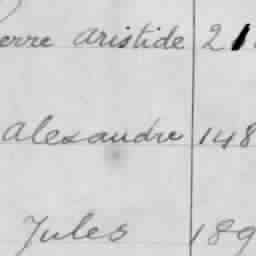 erre aristide 21
Alexandre 148
Jules 189